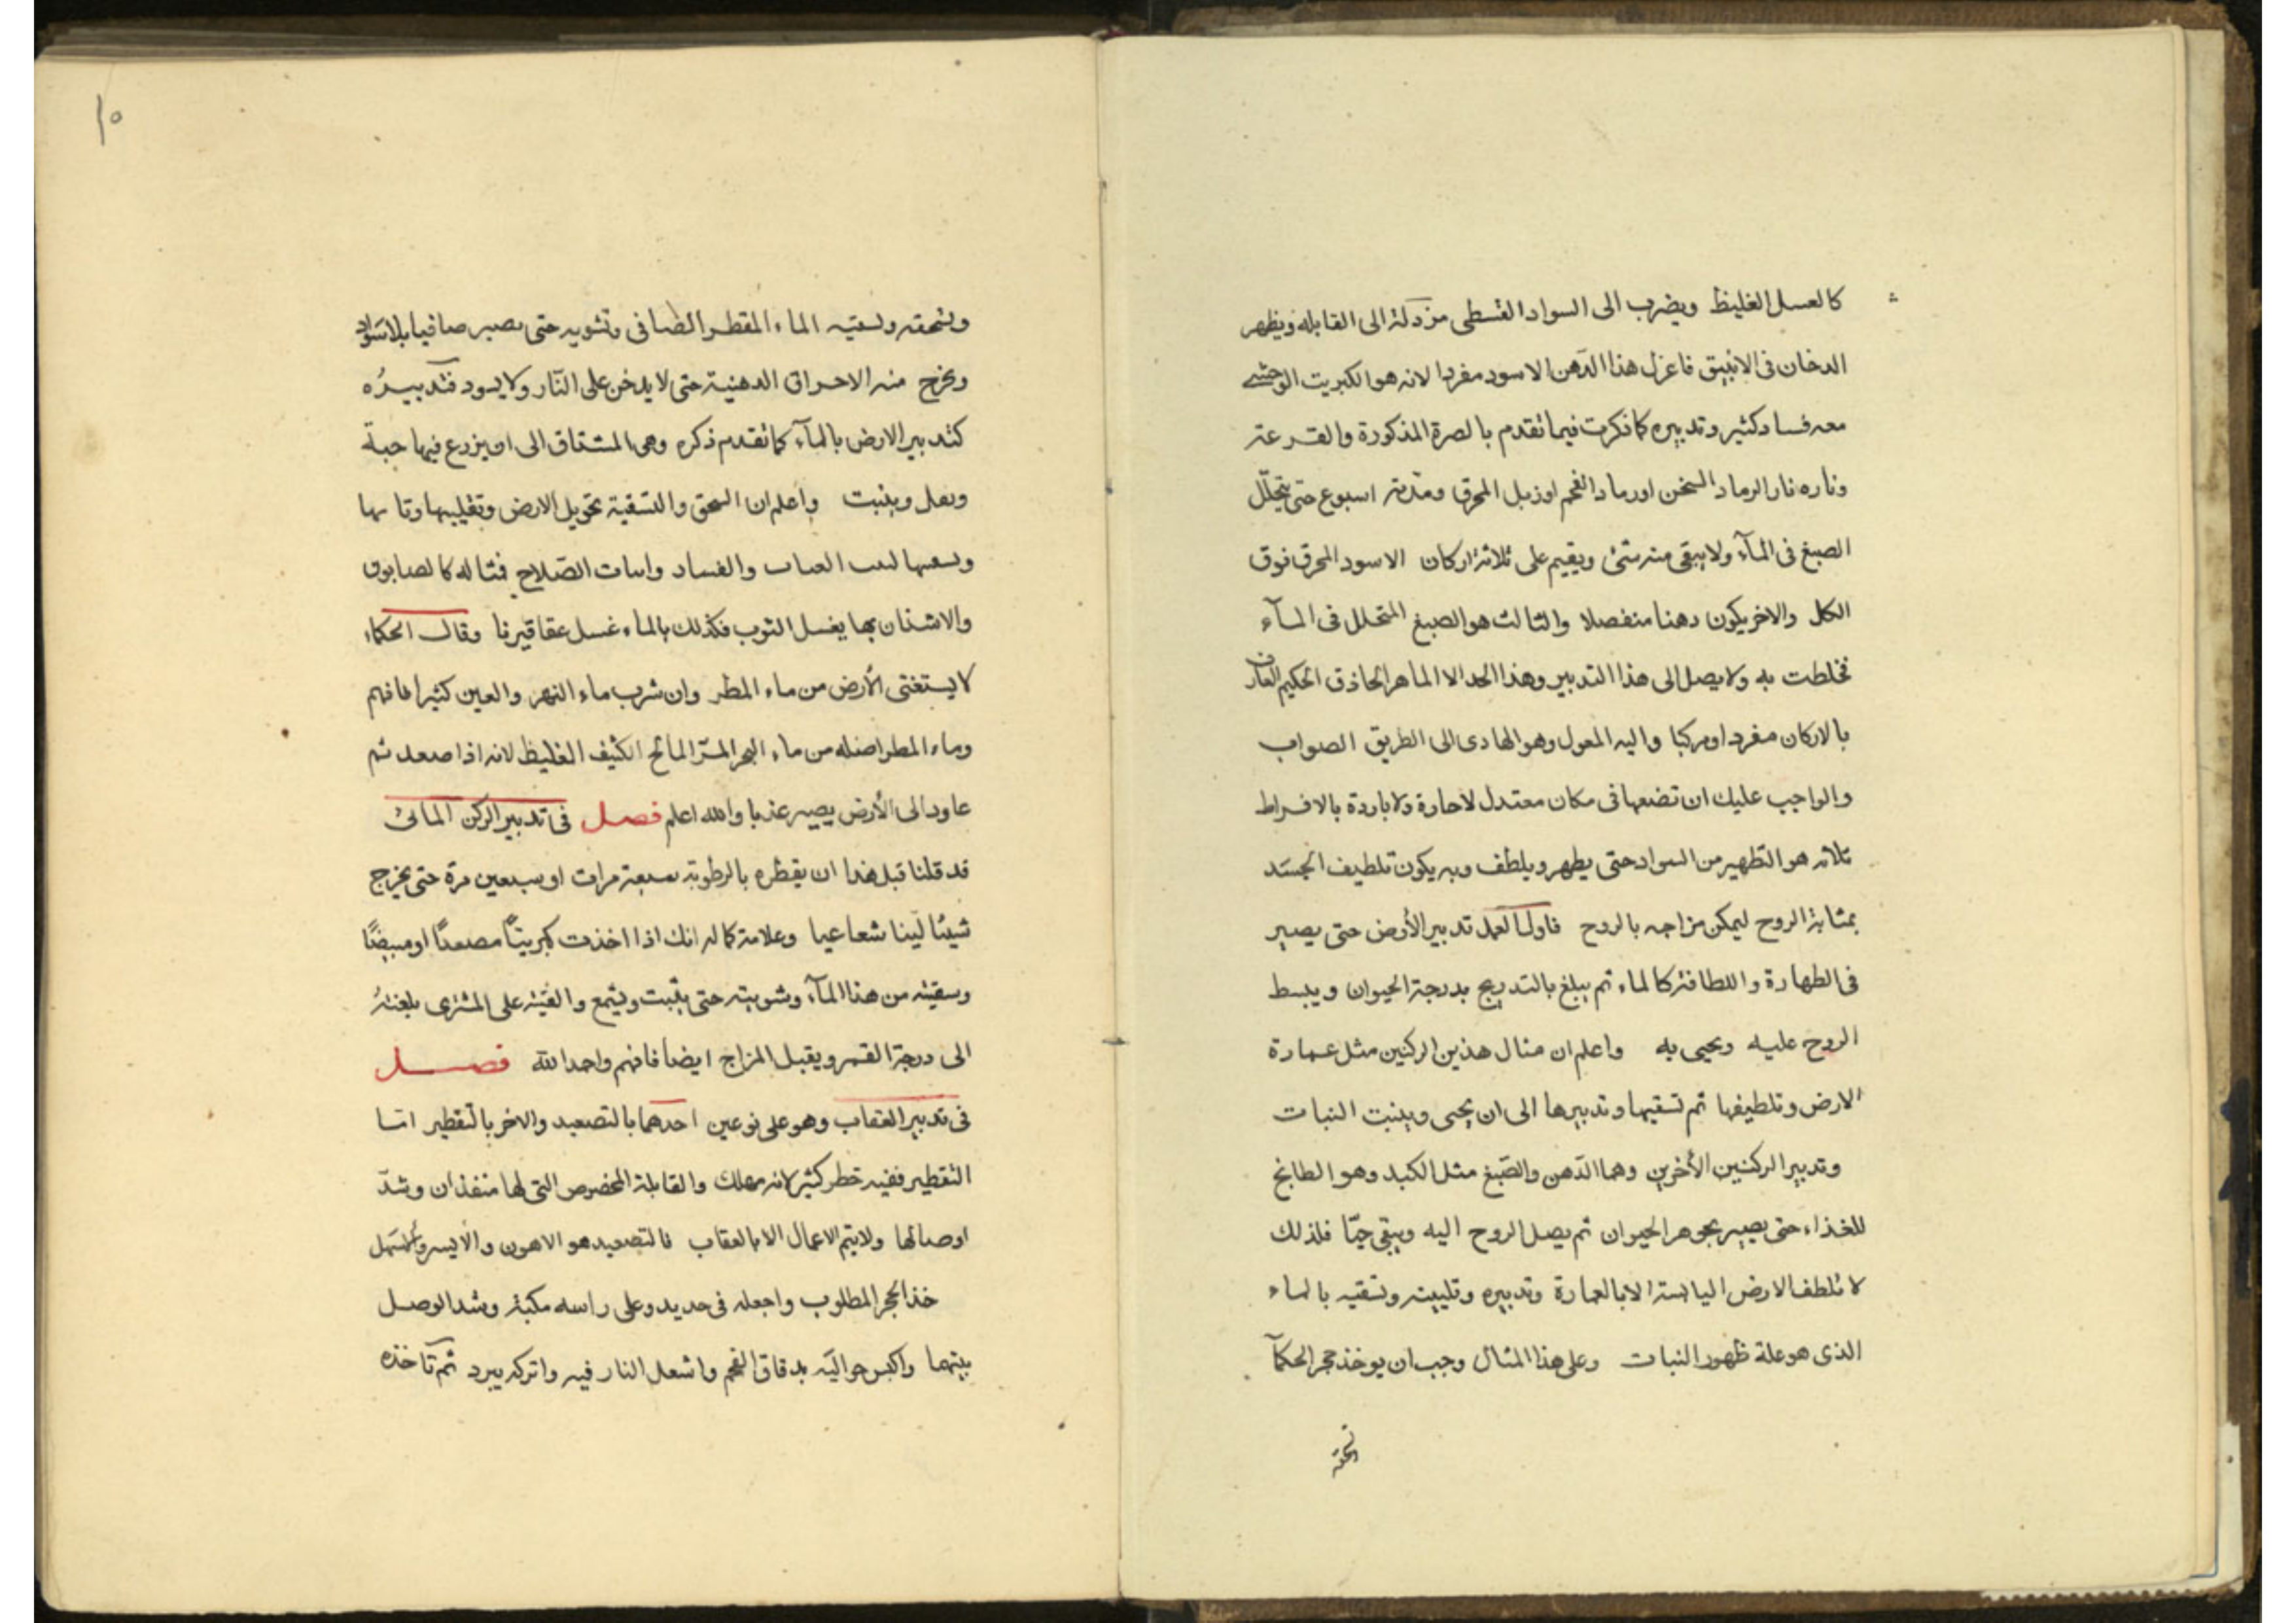 كالعسل الغليظ ويضرب الى السواد القسطى من دلة الى القابله ويظهر
الدخان فى الانبيق فاعزل هذا الدّهن الاسود مفردا لانه هو الكبريت الوحشى
معه فساد كثير وتدبيره كما ذكرت فيما تقدم بالصرة المذكورة والقرعة
وناره نار الرماد السخن او رماد الفحم او زبل المحرق ومدّته اسبوع حتى يتحلّل
الصبغ فى المآء ولا يبقى منه شئ ويقيم على ثلاثة اركان الاسود المحرق فوق
الكل والاخر يكون دهنا منفصلا والثالث هو الصبغ المتحلل فى المآء
فخلطت به ولا يصل الى هذا التدبير وهذا الحد الا الماهر الحاذق الحكيم العارف
بالاركان مفردا ومركبا واليه المعول وهو الهادى الى الطريق الصواب
والواجب عليك ان تضعها فى مكان معتدل لا حارة ولا باردة بالافراط
ثلاثه هو التطهير من السواد حتى يطهر ويلطف وبه يكون تلطيف الجسَد
بمثابة الروح ليمكن مزاجه بالروح فاول العمل تدبير الأرض حتى يصير
فى الطهارة واللطافة كالماء ثم يبلغ بالتدريج بدرجة الحيوان ويبسط
الروح عليه ويحيى به واعلم ان مثال هذين الركنين مثل عمارة
الارض وتلطيفها ثم تسقيها وتدبيرها الى ان يحيى وينبت النبات
وتدبير الركنين الأخرين وهما الدّهن والصّبغ مثل الكبد وهو الطابخ
للغذاء حتى يصير بجوهر الحيوان ثم يصل الروح اليه ويبقى حيّا فلذلك
لا تلطف الارض اليابسة الا بالعمارة وتدبيره وتليينه وتسقيه بالماء
الذى هو علة ظهور النبات وعلى هذا المثال وجب ان يوخذ حجر الحكمآ
١٠
وتسحقه وتسقيه الماء المقطر الصافى وتشويه حتى يصير صافيا بلا سَواد
ويخرج منه الاحراق الدهنية حتى لا يدخن على النّار ولا يسود فتدبيرُه
كتدبير الارض بالمآء كما تقدم ذكره وهى المشتاق الى ان يزرع فيها حبة
وينبت واعلم ان السحق والتسقية تحويل الارض وتقليبها
والفساد الصّلاح فمثاله كالصابون
والاشنان بها يغسل الثوب فكذلك بالماء غسل عقاقيرنا وقال الحكماء
لا يستغنى الأرض من ماء المطر وان شرب ماء النهر والعين كثيرا فافهم
وماء المطر اصله من ماء البحر المرّ المالح الكثيف الغليظ لانه اذا صعد ثم
عاود الى الأرض يصير عذبا والله اعلم فصل فى تدبير الركن المائى
قد قلنا قبل هذا ان يقطره بالرطوبة سبعة مرات او سبعين مرة حتى يخرج
شيئا لينا شعاعيا وعلامة كماله انك اذا اخذت كبريتًا مصعدًا او مبيضًا
وسقيته من هذا المآء وشويته حتى يثبت ويشمع والقيته على المشترى بلغتهُ
الى درجة القمر ويقبل المزاج ايضا فافهم واحمد الله فصل
فى تدبير العقاب وهو على نوعين احدهما بالتصعيد والاخر بالتقطير امّا
التقطير ففيه خطر كثير لانه مهلك والقابلة المخصوص التى لها منفذان وشدّ
اوصالها ولا يتم الاعمال الا بالعقاب فالتصعيد هو الاهون والأيسر وأسهل
خذ الحجر المطلوب واجعله فى حديد وعلى راسه مكبة وشد الوصل
بينهما واكبس حواليه بدقاق الفحم واشعل النار فيه واتركه يبرد ثم تاخذه